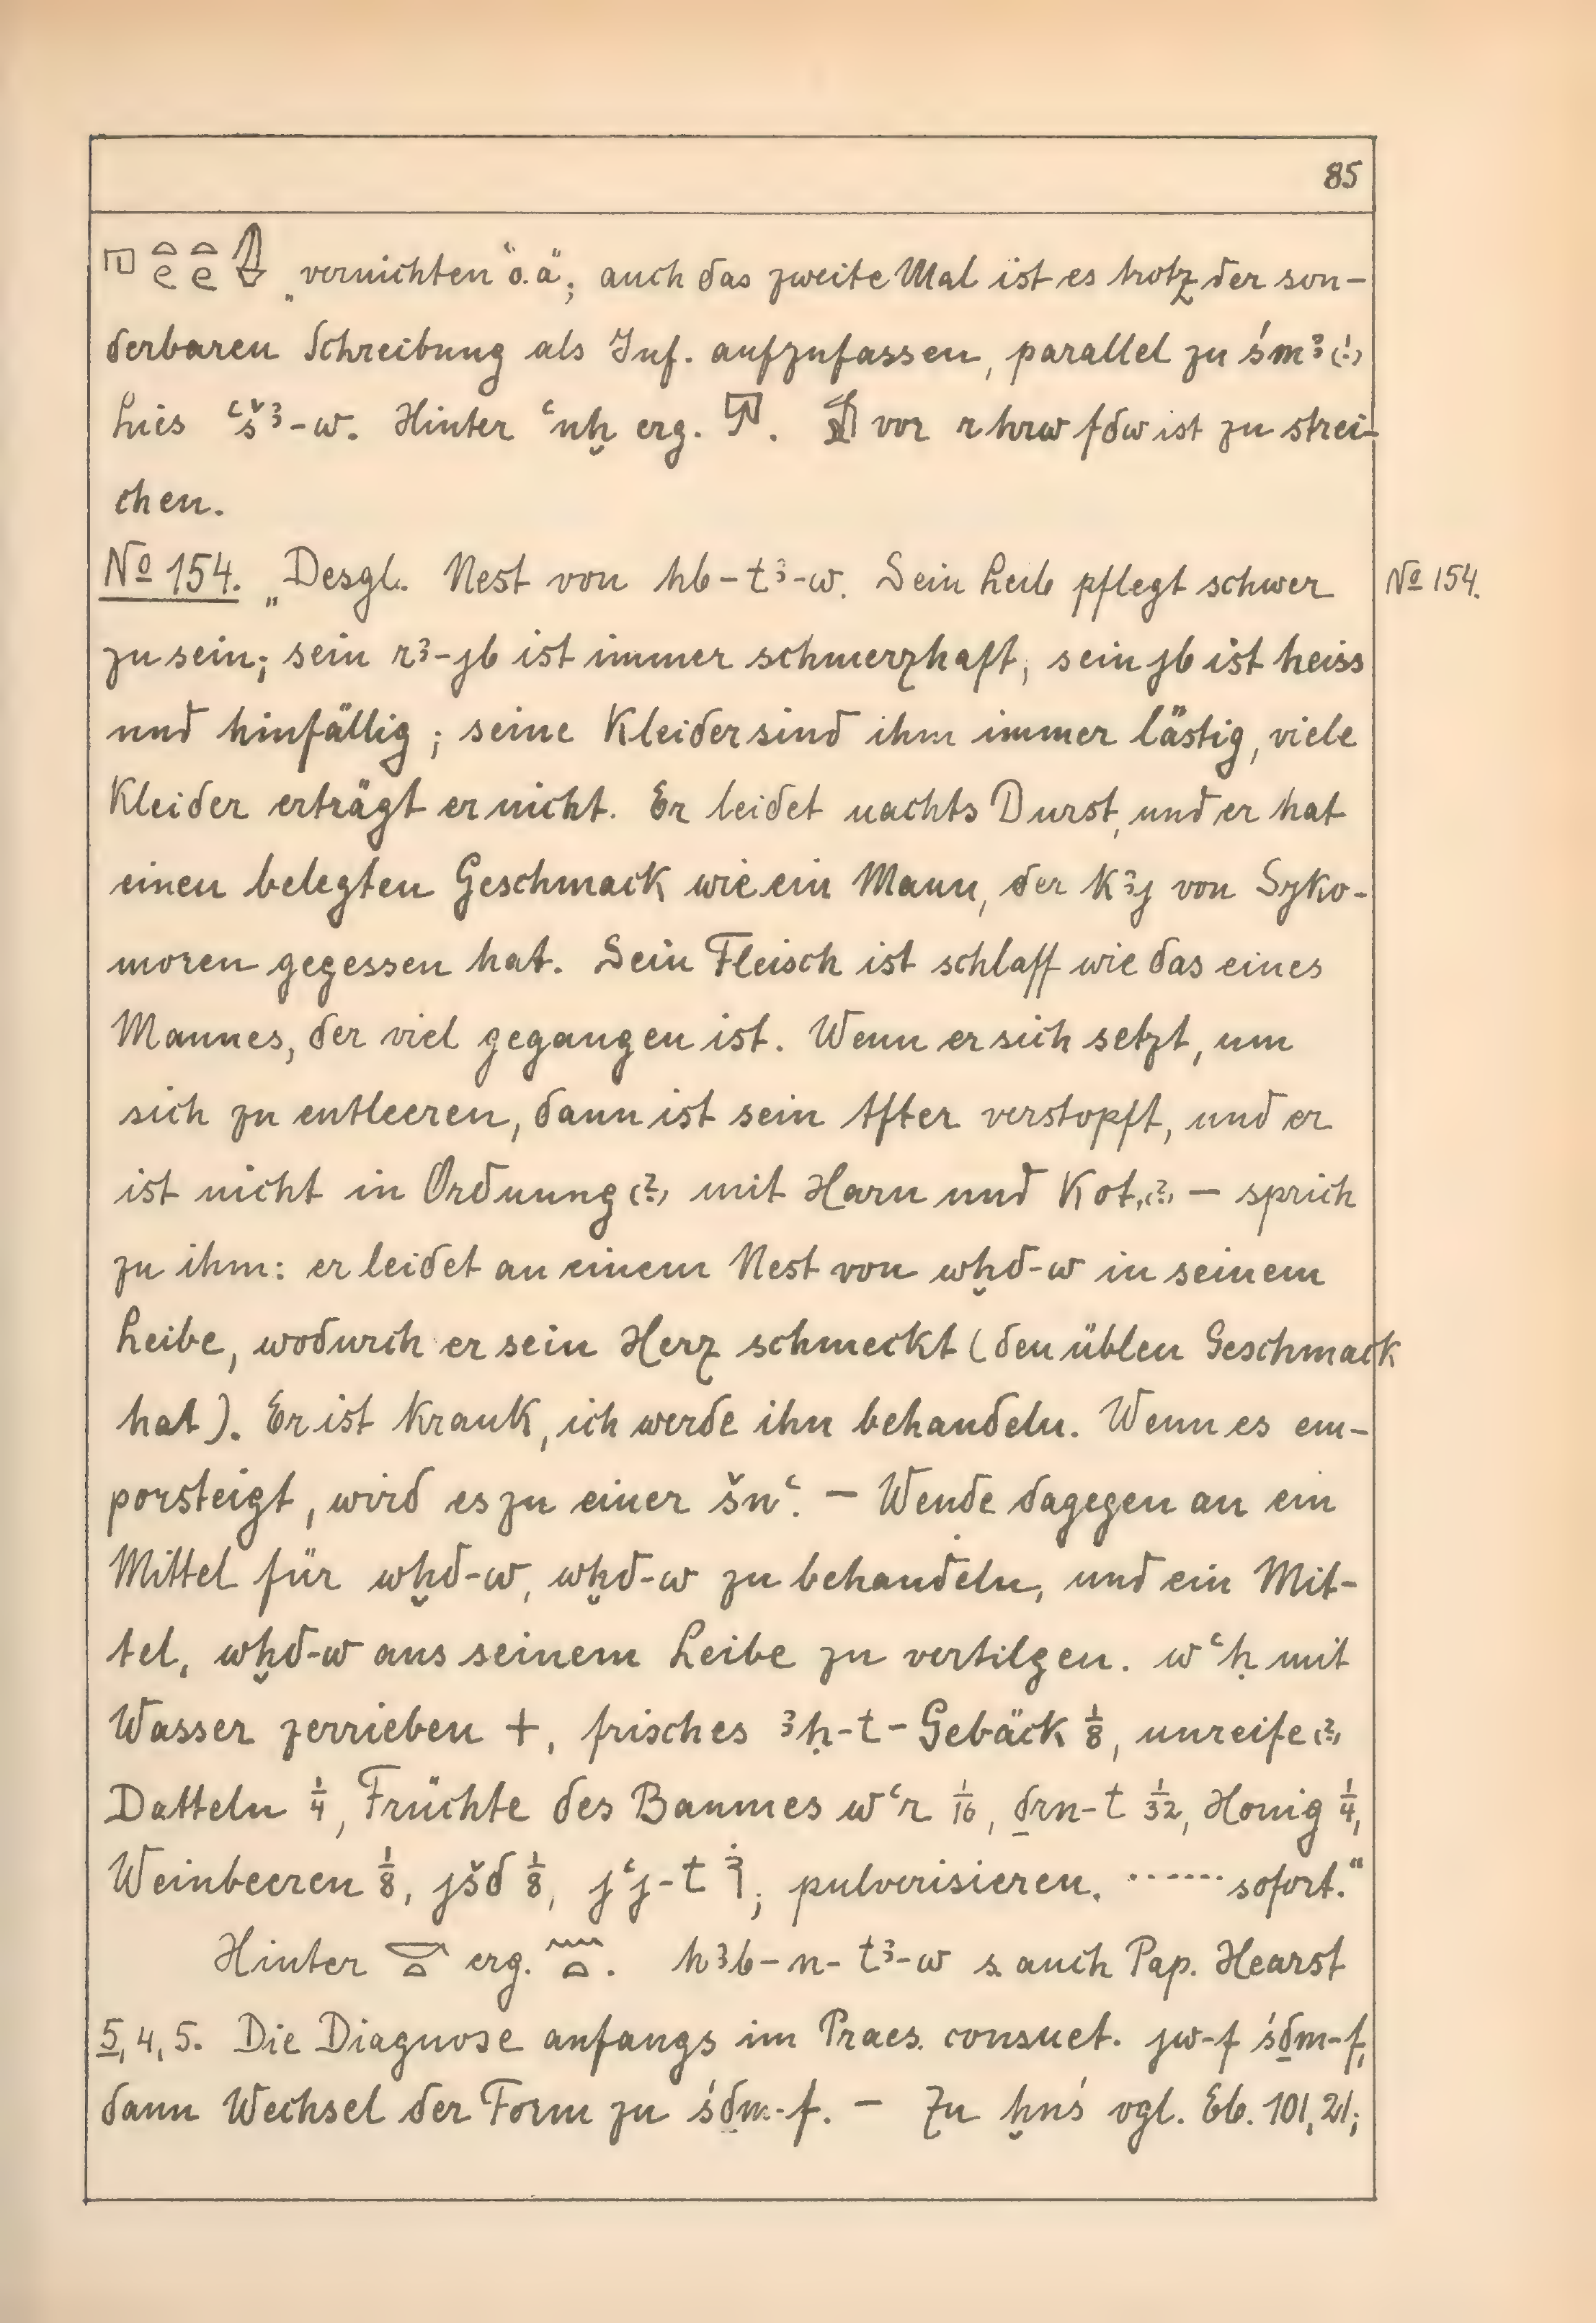 85
„vernichten“ o.ä“; auch das zweite Mal ist es trotz der son-
derbaren Schreibung als Inf. aufzufassen, parallel zu śmꜣ(!)
Lies ꜥšꜣ-w. Hinter ꜥnḫ erg. . vor r hrw fdw ist zu strei-
chen.
No 154. „Desgl. Nest von hb-tꜣ-w. Sein Leib pflegt schwer
No 154.
zu sein; sein rꜣ-jb ist immer schmerzhaft, sein jb ist heiss
und hinfällig; seine Kleider sind ihm immer lästig, viele
Kleider erträgt er nicht. Er leidet nachts Durst, und er hat
einen belegten Geschmack wie ein Mann, der kꜣj von Syko-
moren gegessen hat. Sein Fleisch ist schlaff wie das eines
Mannes, der viel gegangen ist. Wenn er sich setzt, um
sich zu entleeren, dann ist sein After verstopft, und er
ist nicht in Ordnung(?) mit Harn und Kot,(?) – sprich
zu ihm: er leidet an einem Nest von wḫd-w in seinem
Leibe, wodurch er sein Herz schmeckt (den üblen Geschmack
hat). Er ist krank, ich werde ihn behandeln. Wenn es em-
porsteigt, wird es zu einer šnꜥ. – Wende dagegen an ein
Mittel für wḫd-w, wḫd-w zu behandeln, und ein Mit-
tel, wḫd-w aus seinem Leibe zu vertilgen. wꜥḥ mit
Wasser zerrieben +, frisches ꜣḥ-t-Gebäck 1/8, unreife(?)
Datteln 1/4, Früchte des Baumes wꜥr 1/16, ḏrn-t 1/32, Honig 1/4,
Weinbeeren 1/8, jšd 1/8, jꜥj-t ; pulverisieren. ······ sofort.“
Hinter erg. . hꜣb-n-tꜣ-w s. auch Pap. Hearst
5, 4, 5. Die Diagnose anfangs im Praes. consuet. jw-f śḏm-f,
dann Wechsel der Form zu śḏm-f. – Zu ḫnś vgl. Eb. 101, 21;